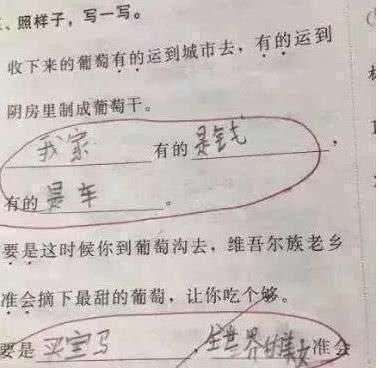 、照样子，写一写。
收下来的葡萄有的运到城市去，有的运到
阴房里制成葡萄干。
我家有的是钱，
有的是车。
要是这时候你到葡萄沟去，维吾尔族老乡
准会摘下最甜的葡萄，让你吃个够。
要是 宝马，全世界的美女准会